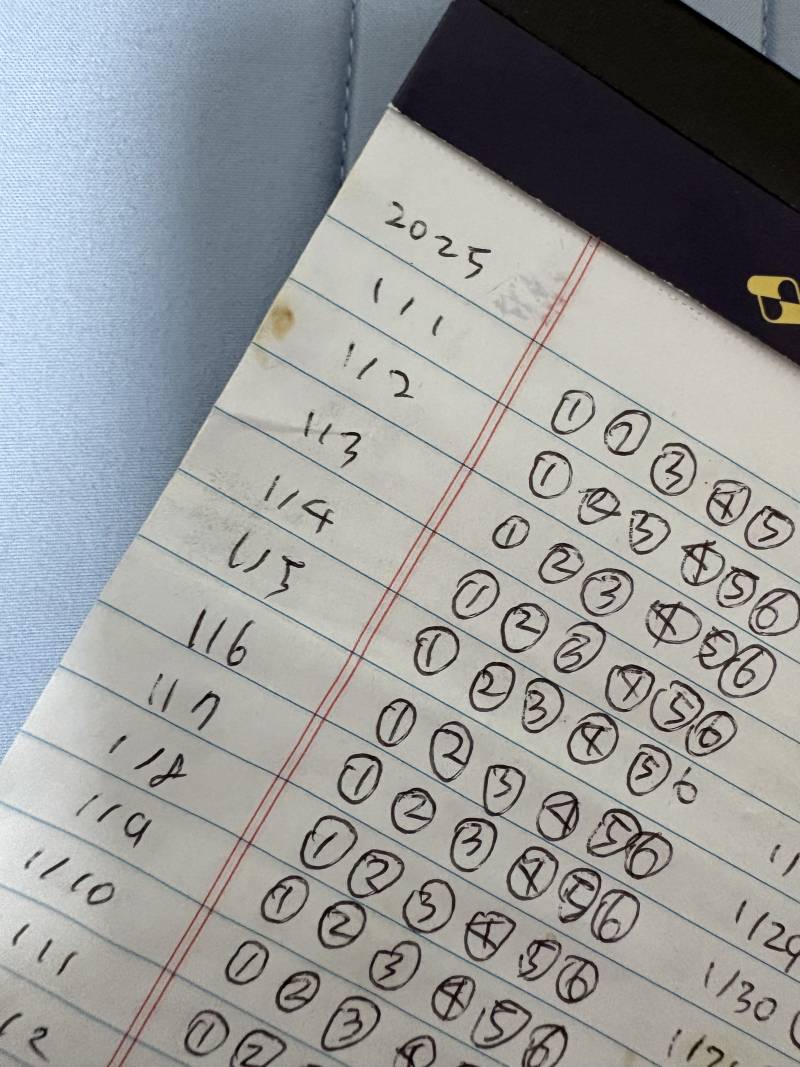 2025
1/1 ① ② ③ ④ ⑤
1/2 ① ② ③ ④ ⑤ ⑥
1/3 ① ② ③ ④ ⑤ ⑥
1/4 ① ② ③ ④ ⑤ ⑥
1/5 ① ② ③ ④ ⑤ 6
1/6 ① ② ③ ④ ⑤ ⑥ 1/29
1/7 ① ② ③ ④ ⑤ ⑥ 1/30
1/8 ① ② ③ ④ ⑤ ⑥
1/9 ① ② ③ ④ ⑤ ⑥
1/10 ① ② ③ ④
1/11 ① ②